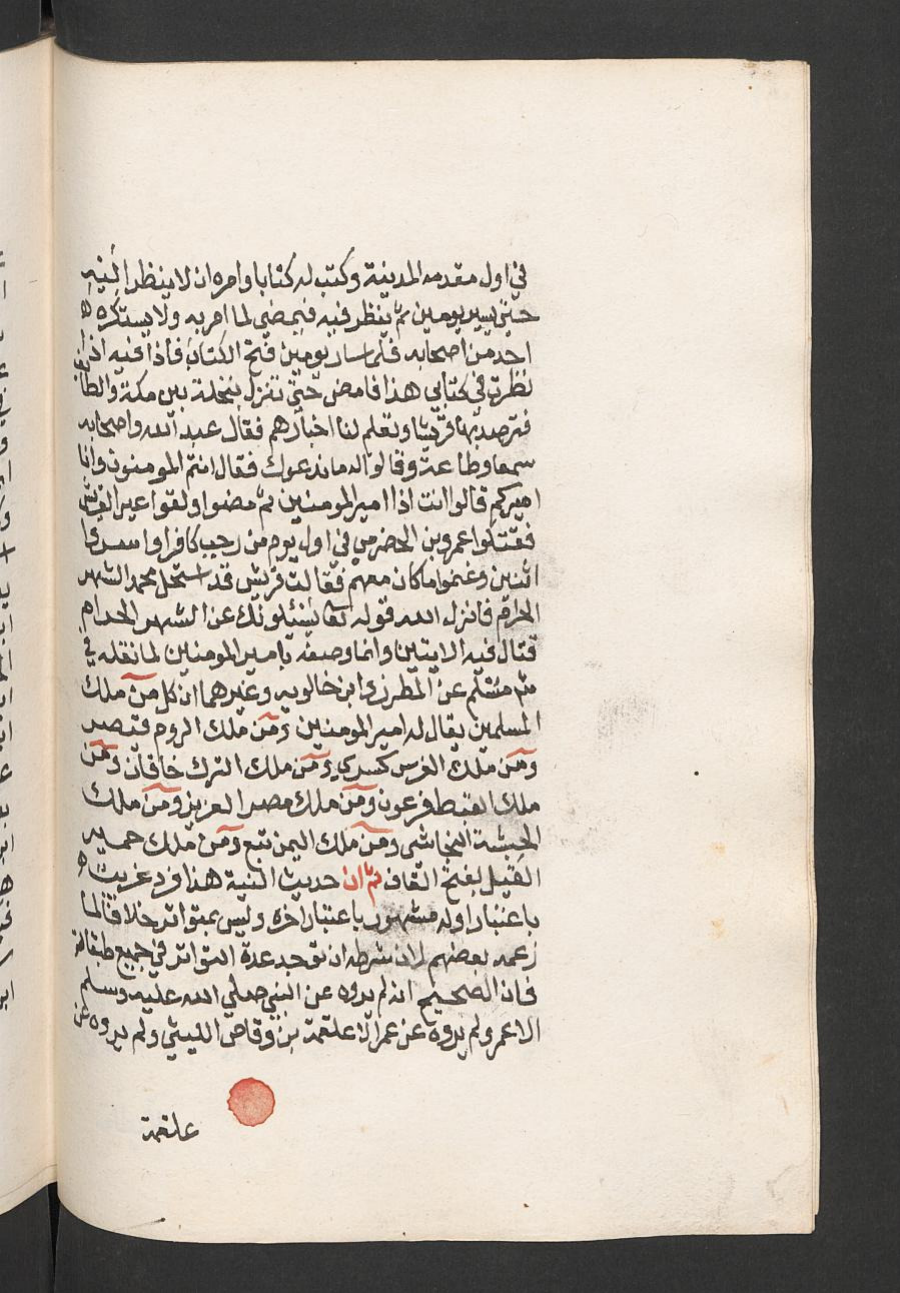 في اول مقدمه المدينة وكتب له كتابا وامره ان لا ينظر اليه
حتى يسير يومين ثم ينظر فيه فيمضي لما امر به ولا يستكره
احد من اصحابه فلما سار يومين فتح الكتاب فاذا فيه اذا
نظرت في كتابي هذا فامض حتى تنزل بنخلة بين مكة والطائف
فترصد بها قريشا وتعلم لنا اخبارهم فقال عبد الله واصحابه
سمعا وطاعة وقالوا له ما ندعوك فقال انتم المومنون وانا
اميركم قالوا انت اذا امير المومنين ثم مضوا ولقوا عير القريش
فقتلوا عمرو بن الحضرمي في اول يوم من رجب كافرا واسروا
اثنين وغنموا ما كان معهم فقالت قريش قد استحل محمد الشهر
الحرام فانزل الله قوله تعا يسئلونك عن الشهر الحرام
قتال فيه الايتين وانما وصفه بامير المومنين لما نقله في
مسلم عن المطرزي ابن خالويه وغيرهما ان كل من ملك
المسلمين يقال له امير المومنين ومن ملك الروم قيصر
ومن ملك الفرس كسرى ومن ملك الترك خاقان ومن
ملك القبط فرعون ومن ملك مصر العزيز ومن ملك
الحبشة النجاشى ومن ملك اليمن تبع ومن ملك حمير
القيل بفتح القاف ثم ان حديث النية هذا فرد غريب
باعتبار اوله مشهور باعتبار اخره وليس بمتواتر خلافا لما
زعمه بعضهم لان شرطه ان توجد عدة التواتر في جميع طبقاته
فان الصحيح انه لم يروه عن النبي صلي الله عليه وسلم
الا عمر ولم يروه عن عمر الا علقمة بن وقاص الليثي ولم يروه عن
علقمة